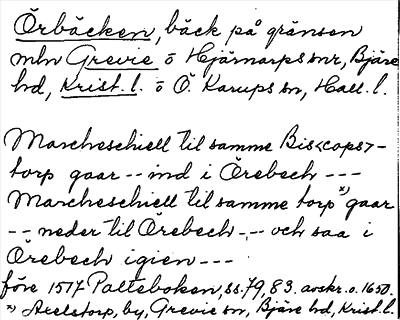 Örbäcken, bäck på gränsen
mln Grevie o Hjärnarps snr, Bjäre
hd, Krist. l. o Ö. Karups sn, Hall. l.
Marcheschiell til samme Biscops-
torp gaar -- ind i Örebech ---
Marcheschiell til samme torp x) gaar
-- neder til Örebech -.- och saa i
Örebech igien ---
före 1577 Palteboken, ss. 79, 83. avskr. o. 1650.
x) Axelstorp, by, Grevie sn, Bjäre hd, Krist. l.